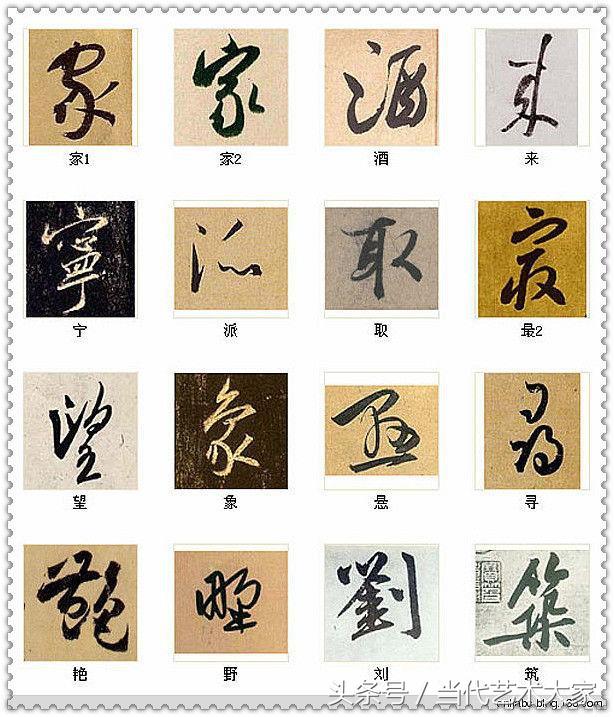 家 家 酒 来
家1 家2 酒 来
寧 派 取 最
宁 派 取 最2
望 象 悬 尋
望 象 悬 寻
艳 野 劉 築
艳 野 刘 筑
头条号 / 当代艺术大家